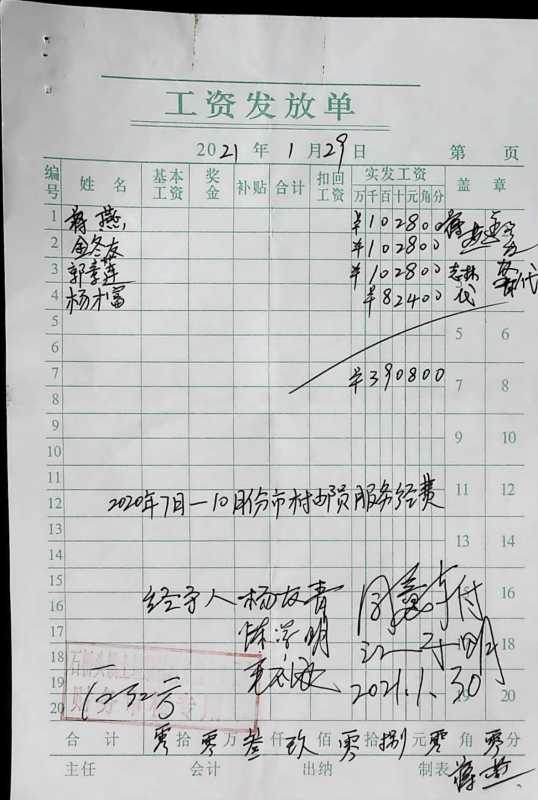 工资发放单
2021年1月29日 第 页
编号 姓名 基本工资 奖金 补贴 合计 扣回工资 实发工资 盖章
万千百十元角分
1 蒋燕 ¥102800 蒋燕
2 金冬友 ¥102800
3 郭幸莲 ¥102800 代 代
4 杨木富 ¥82400
5 5 6
6
7 ¥390800 7 8
8
9 9 10
10
11 11 12
12 2020年7月—10月份市村邮员服务经费
13 13 14
14
15 经手人 杨友青 同意支付 16
16
17 陈学明 18
18
19 2021.1.30 19 20
20 1232号
合计 零拾零万叁仟玖佰零拾捌元零角零分
主任 会计 出纳 制表 蒋燕